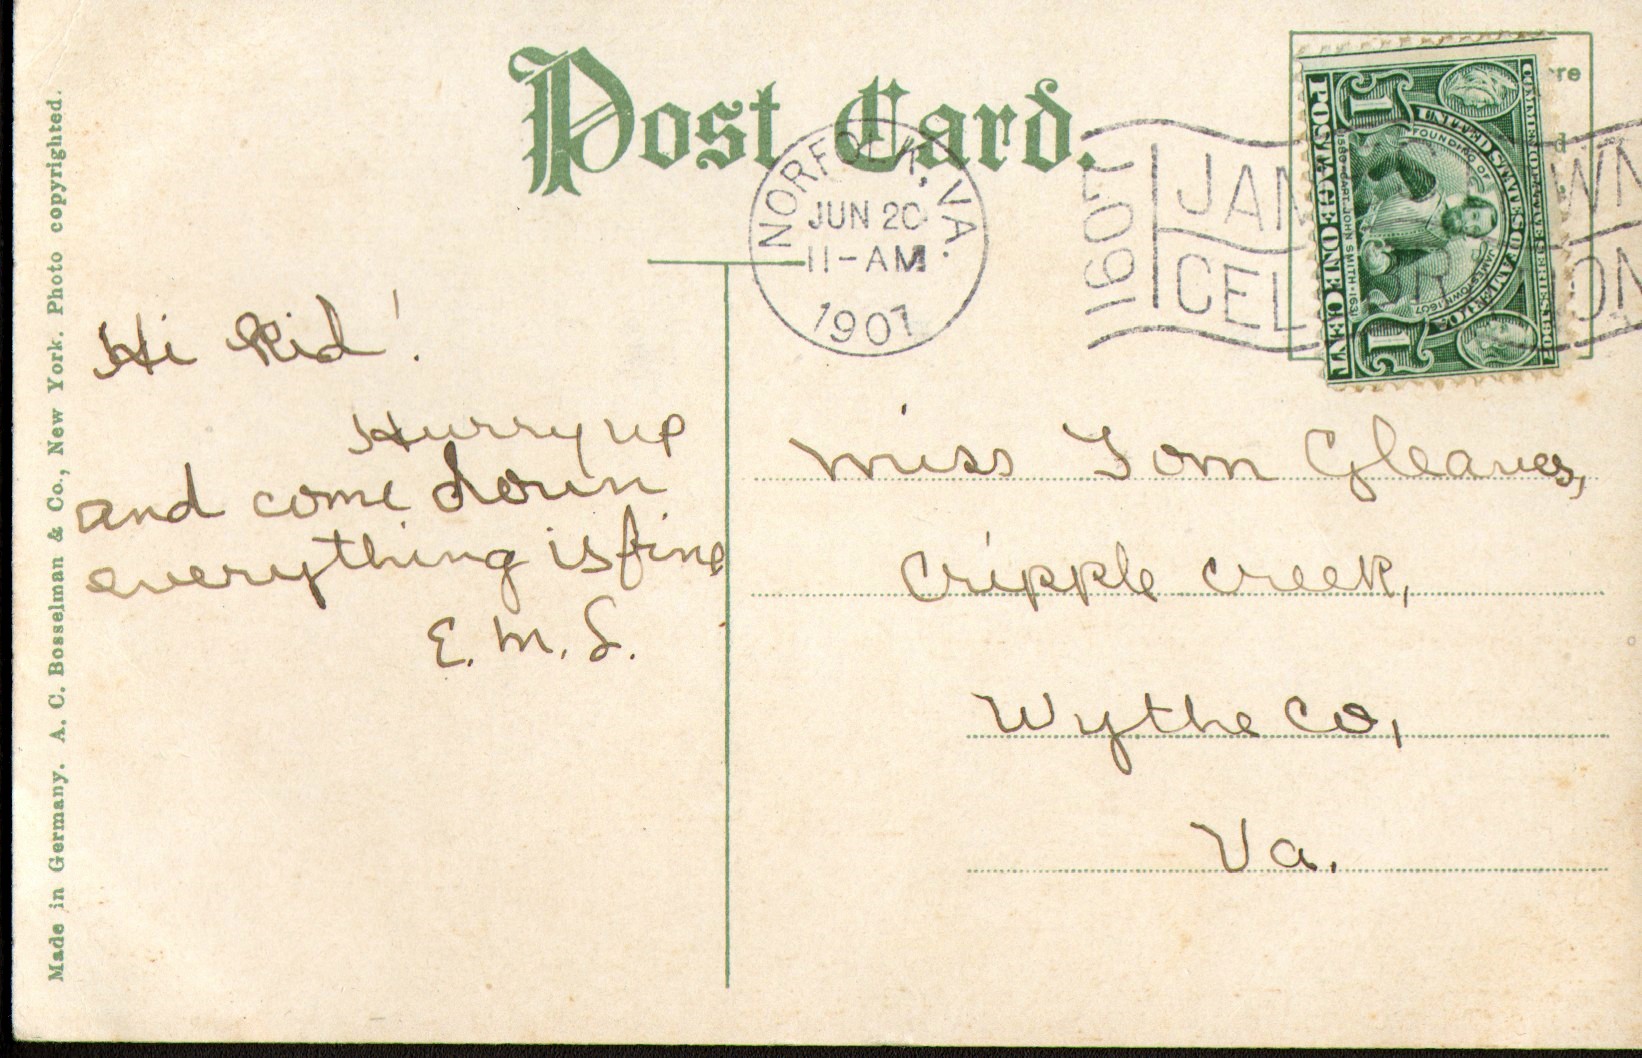 Post Card.
NORFOLK, VA.
JUN 20
11-AM
1907
1607
JAMESTOWN
CELEBRATION
POSTAGE ONE CENT
UNITED STATES OF AMERICA
FOUNDING OF JAMESTOWN 1607
1580 CAPT. JOHN SMITH 1631
1
1
Hi Kid!
Hurry up
and come down
everything is fine
E. M. S.
Miss Tom Gleaves,
Cripple Creek,
Wythe Co,
Va.
Made in Germany. A. C. Bosselman & Co., New York. Photo copyrighted.